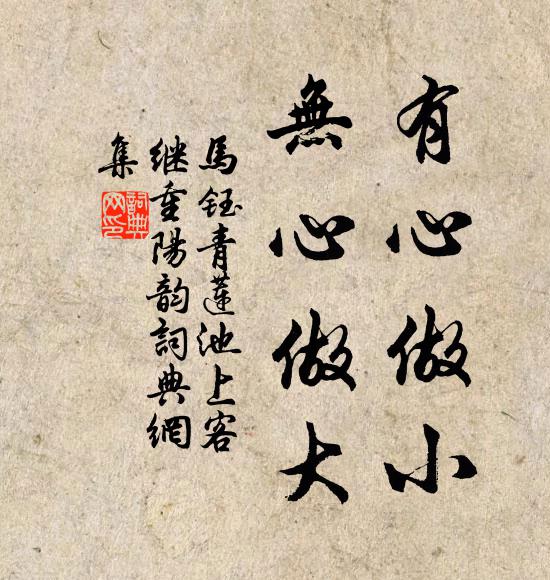 有心做小
無心做大
馬鈺青蓮池上客
继重陽韵詞典網
集
詞典
网印